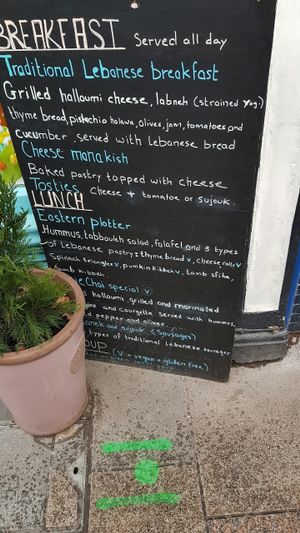 BREAKFAST Served all day
Traditional Lebanese breakfast
Grilled halloumi cheese, labneh (strained yog.)
thyme bread, pistachio halawa, olives, jam, tomatoes and
cucumber, served with Lebanese bread
Cheese manakish
Baked pastry topped with cheese
Tosties Cheese + tomatoe or sujouk.
LUNCH
Eastern plotter
Hummus, tabbouleh salad, falafel and 3 types
of Lebanese pastry: thyme bread v, cheese rolls v
Spinach triangles v, pumkin kibbeh v, Lamb sfiha,
Lamb kibbeh
Chai special v
halloumi, grilled and marinated
and courgette served with humous,
pepper and olives.
and sujouk (Sausages)
types of traditional Lebanese sausages
SOUP (V + vegan + gluten free)